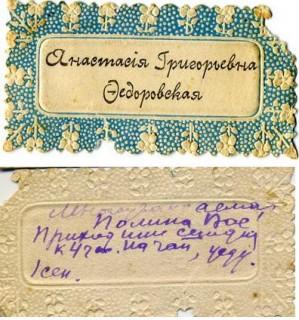 Анастасія Григорьевна
Ѳедоровская
Полина Вас!
Приходите сегодня
к 4 час. на чай, жду.
1 сен.